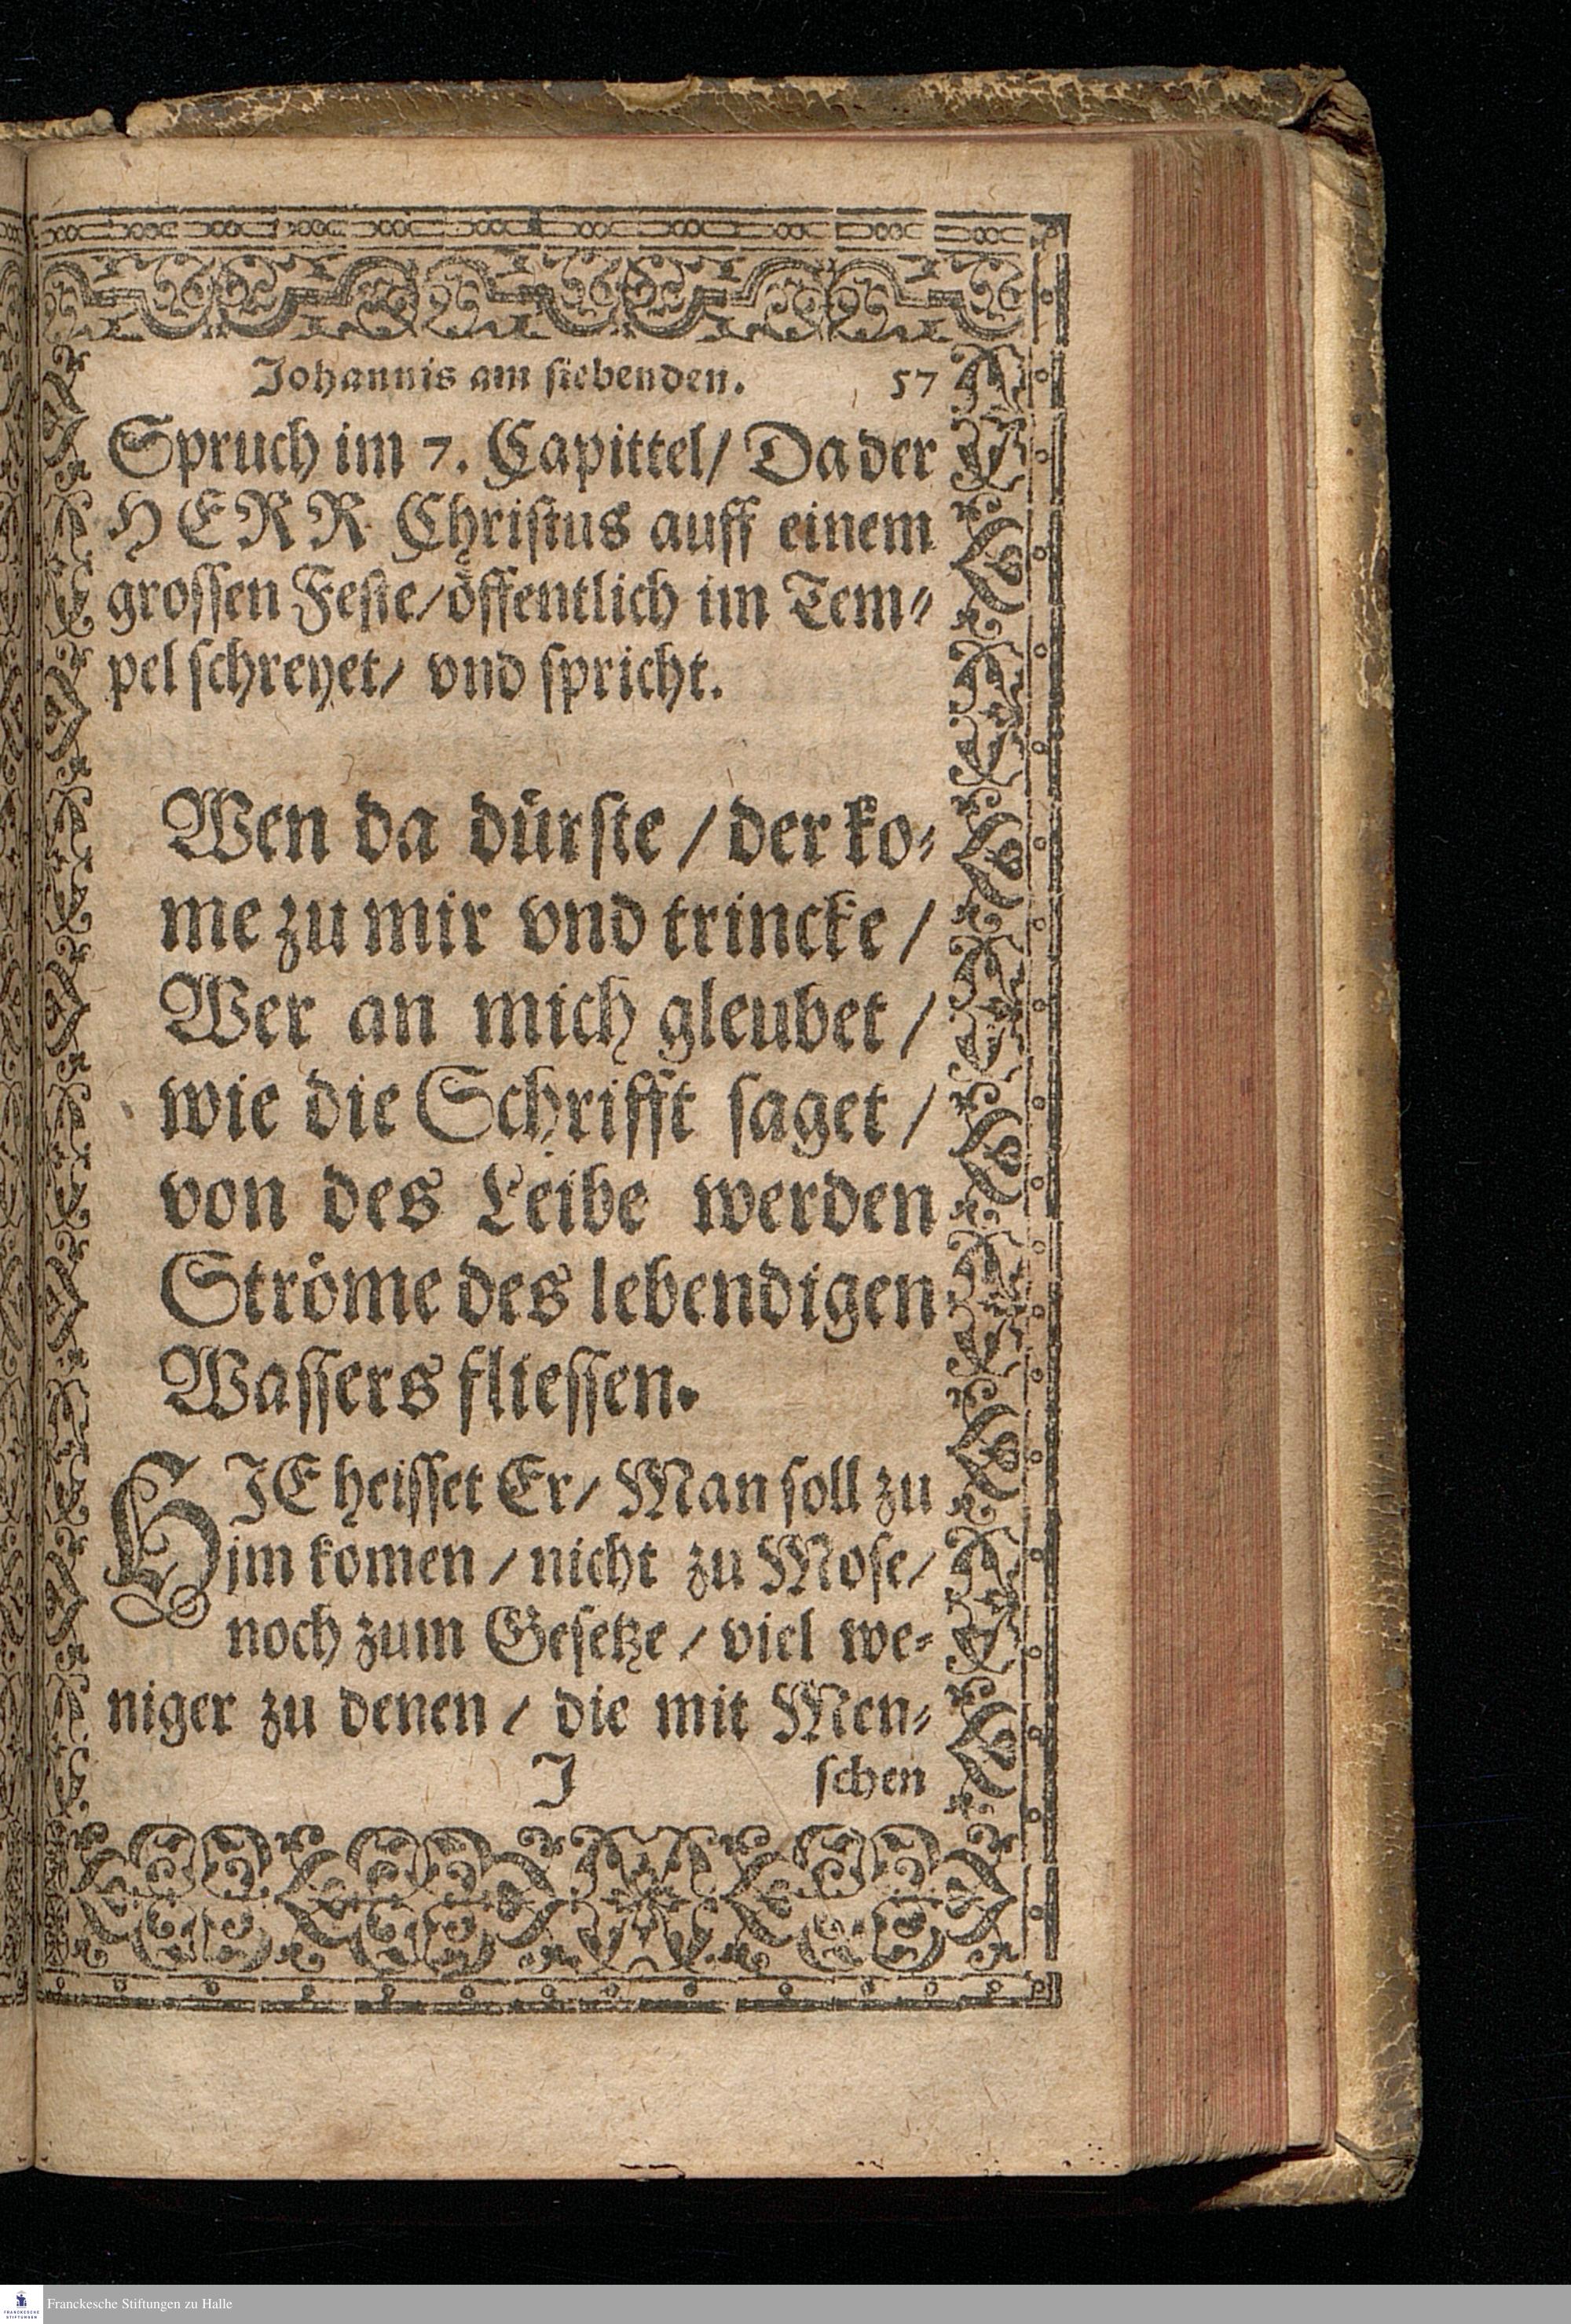 Johannis am siebenden. 57
Spruch im 7. Capittel/ Da der
HERR Christus auff einem
grossen Feste/ öffentlich im Tem⸗
pel schreyet/ vnd spricht.
Wen da dürste / der ko⸗
me zu mir vnd trincke /
Wer an mich gleubet /
wie die Schrifft saget /
von des Leibe werden
Ströme des lebendigen
Wassers fliessen.
HJE heisset Er/ Man soll zu
jm komen / nicht zu Mose/
noch zum Gesetze / viel we⸗
niger zu denen / die mit Men⸗
J schen
FRANCKESCHE STIFTUNGEN
Franckesche Stiftungen zu Halle